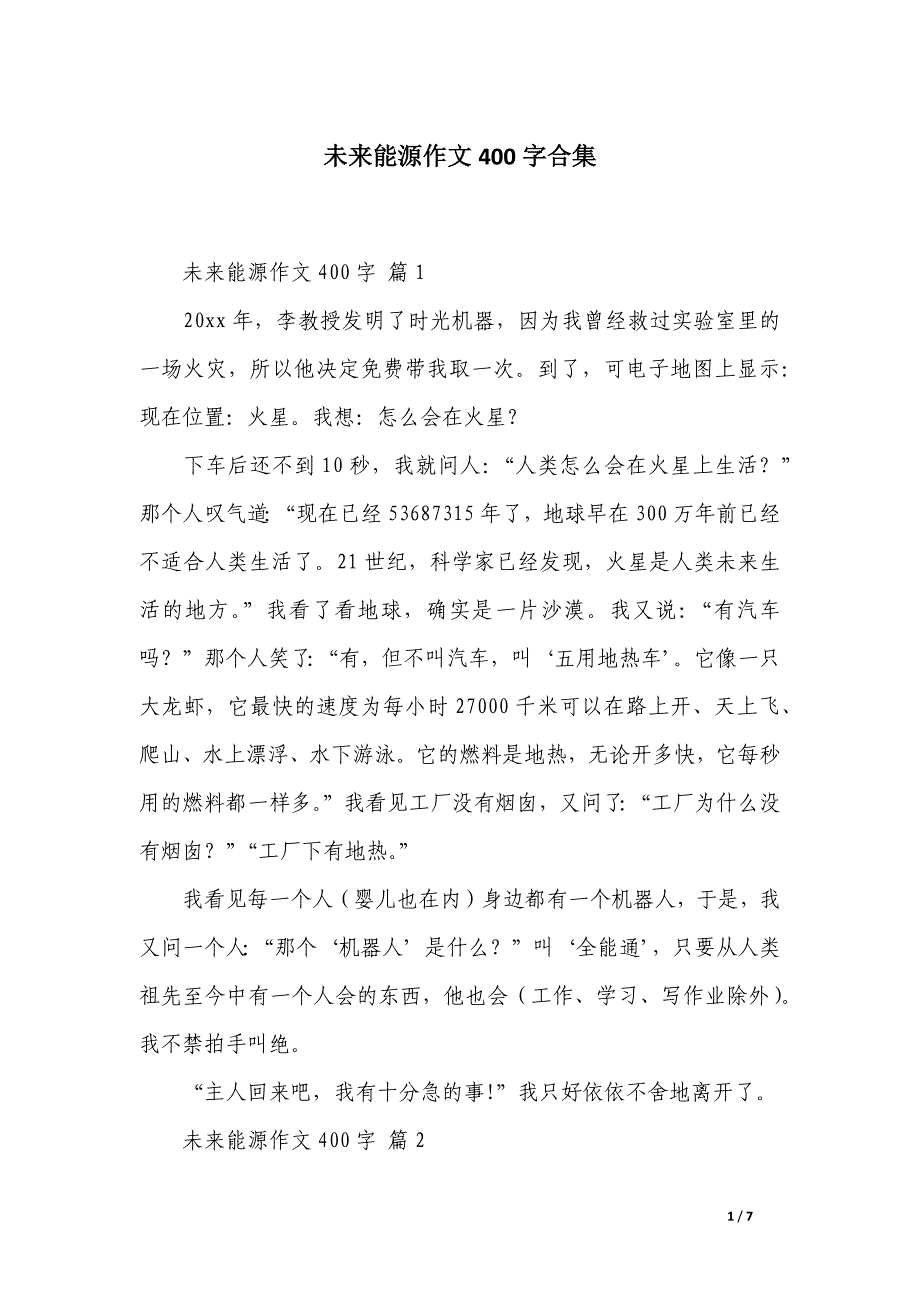 未来能源作文 400 字合集
未来能源作文 400 字 篇 1
20xx 年，李教授发明了时光机器，因为我曾经救过实验室里的
一场火灾，所以他决定免费带我取一次。到了，可电子地图上显示：
现在位置：火星。我想：怎么会在火星？
下车后还不到 10 秒，我就问人：“人类怎么会在火星上生活？”
那个人叹气道：“现在已经 53687315 年了，地球早在 300 万年前已经
不适合人类生活了。21 世纪，科学家已经发现，火星是人类未来生
活的地方。”我看了看地球，确实是一片沙漠。我又说：“有汽车
吗？”那个人笑了：“有，但不叫汽车，叫‘五用地热车’。它像一只
大龙虾，它最快的速度为每小时 27000 千米可以在路上开、天上飞、
爬山、水上漂浮、水下游泳。它的燃料是地热，无论开多快，它每秒
用的燃料都一样多。”我看见工厂没有烟囱，又问了：“工厂为什么没
有烟囱？”“工厂下有地热。”
我看见每一个人（婴儿也在内）身边都有一个机器人，于是，我
又问一个人：“那个‘机器人’是什么？”叫‘全能通’，只要从人类
祖先至今中有一个人会的东西，他也会（工作、学习、写作业除外）。
我不禁拍手叫绝。
“主人回来吧，我有十分急的事！”我只好依依不舍地离开了。
未来能源作文 400 字 篇 2
1 / 7